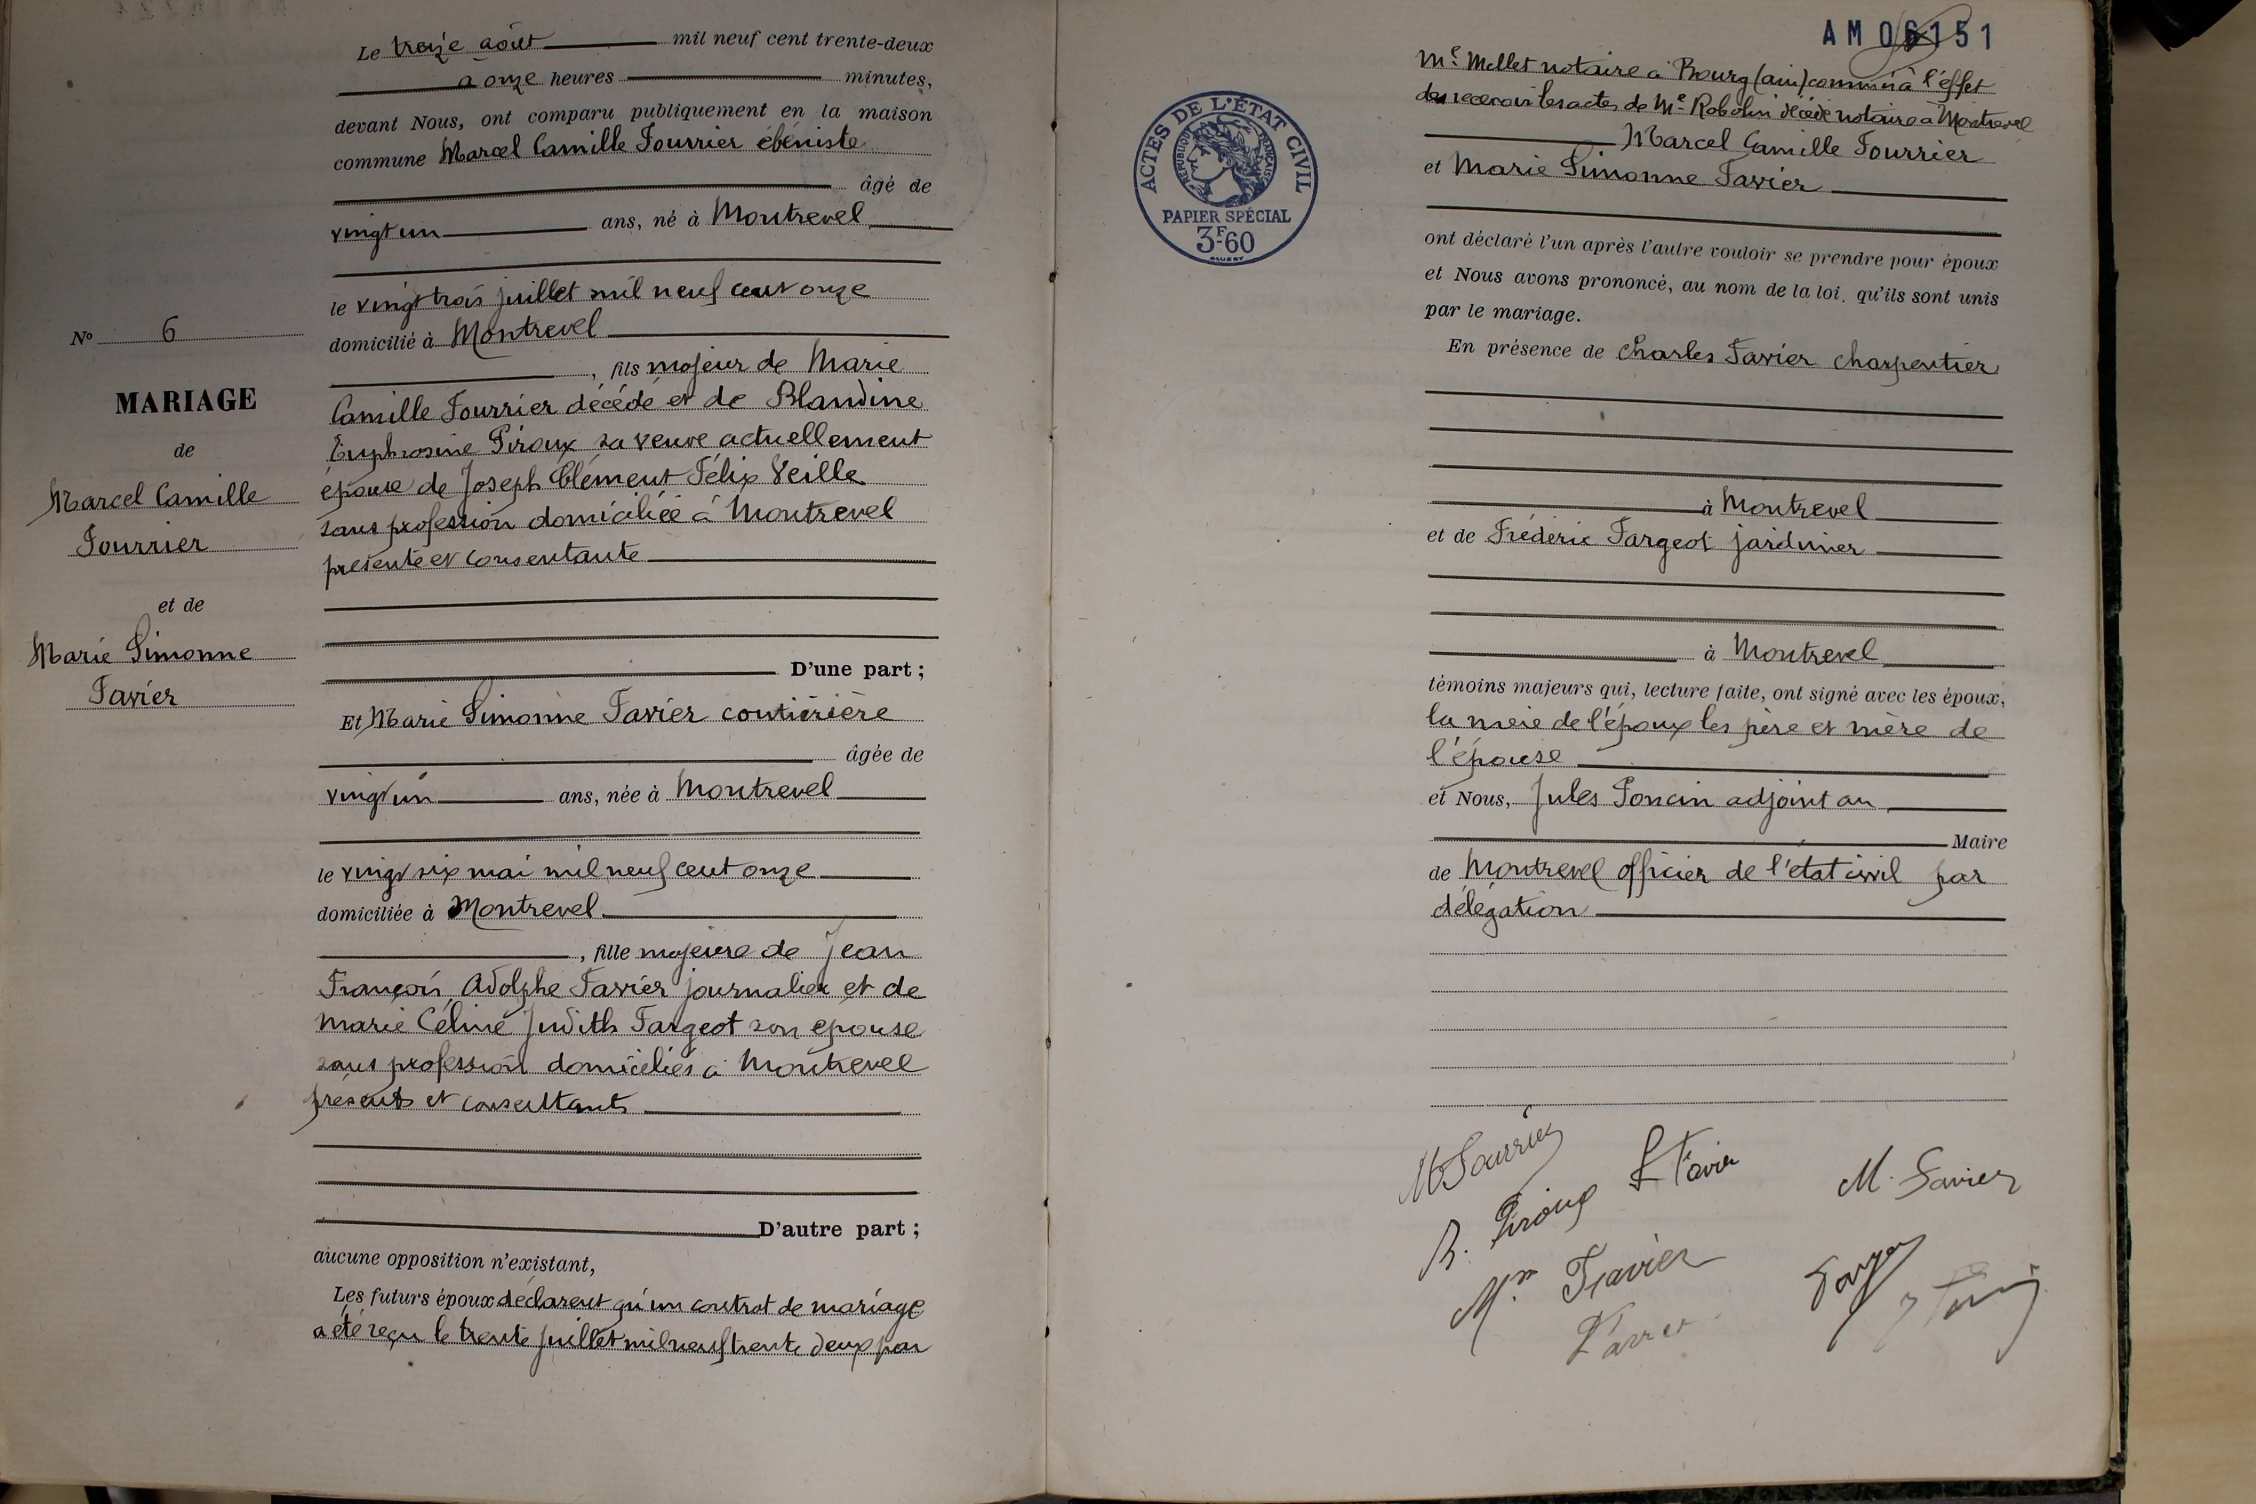 Le treize août mil neuf cent trente-deux
à onze heures minutes,
devant Nous, ont comparu publiquement en la maison
commune Marcel Camille Fourrier ébéniste
âgé de
vingt un ans, né à Montrevel
le vingt trois juillet mil neuf cent onze
domicilié à Montrevel
, fils majeur de Marie
Camille Fourrier décédé et de Blandine
Euphrosine Piroux sa veuve actuellement
épouse de Joseph Clément Félix Veille
sans profession domiciliée à Montrevel
présente et consentante
D'une part ;
Et Marie Simonne Favier couturière
âgée de
vingt un ans, née à Montrevel
le vingt six mai mil neuf cent onze
domiciliée à Montrevel
, fille majeure de Jean
François Adolphe Favier journalier et de
Marie Céline Judith Fargeot son épouse
sans profession domiciliés à Montrevel
présents et consentants
D'autre part ;
aucune opposition n'existant,
Les futurs époux déclarent qu'un contrat de mariage
a été reçu le trente juillet mil neuf trente deux par
No 6
MARIAGE
de
Marcel Camille
Fourrier
et de
Marie Simonne
Favier
AM 06151
Me Mellet notaire à Bourg (ain) commis à l'effet
de recevoir les actes de Me Robolin décédé notaire à Montrevel
Marcel Camille Fourrier
et Marie Simonne Favier
ont déclaré l'un après l'autre vouloir se prendre pour époux
et Nous avons prononcé, au nom de la loi, qu'ils sont unis
par le mariage.
En présence de Charles Favier charpentier
à Montrevel
et de Frédéric Fargeot jardinier
à Montrevel
témoins majeurs qui, lecture faite, ont signé avec les époux,
la mère de l'époux les père et mère de
l'épouse
et Nous, Jules Poncin adjoint au
Maire
de Montrevel officier de l'état civil par
délégation
ACTES DE L'ÉTAT CIVIL
RÉPUBLIQUE FRANÇAISE
PAPIER SPÉCIAL
3F60
M Fourrier
Favier
M. Favier
B. Piroux
Mm Favier